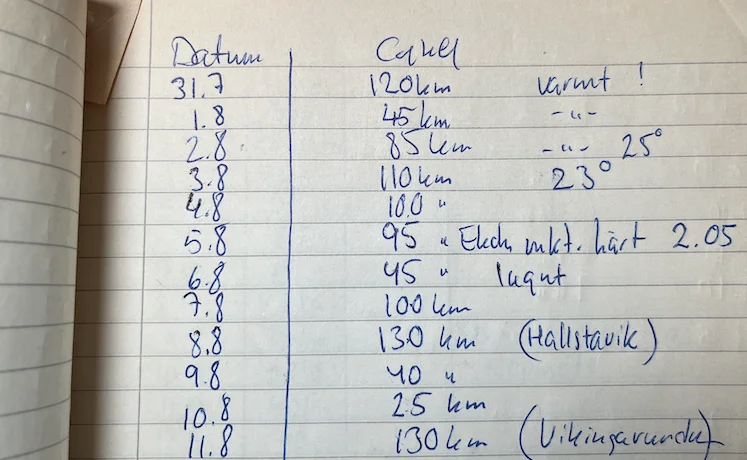 Datum Cykel
31.7 120 km varmt !
1.8 45 km -"-
2.8 85 km -"- 25°
3.8 110 km 23°
4.8 100 "
5.8 95 " hårt 2.05
6.8 45 " lugnt
7.8 100 km
8.8 130 km (Hallstavik)
9.8 40 "
10.8 25 km
11.8 130 km (Vikingarundan)